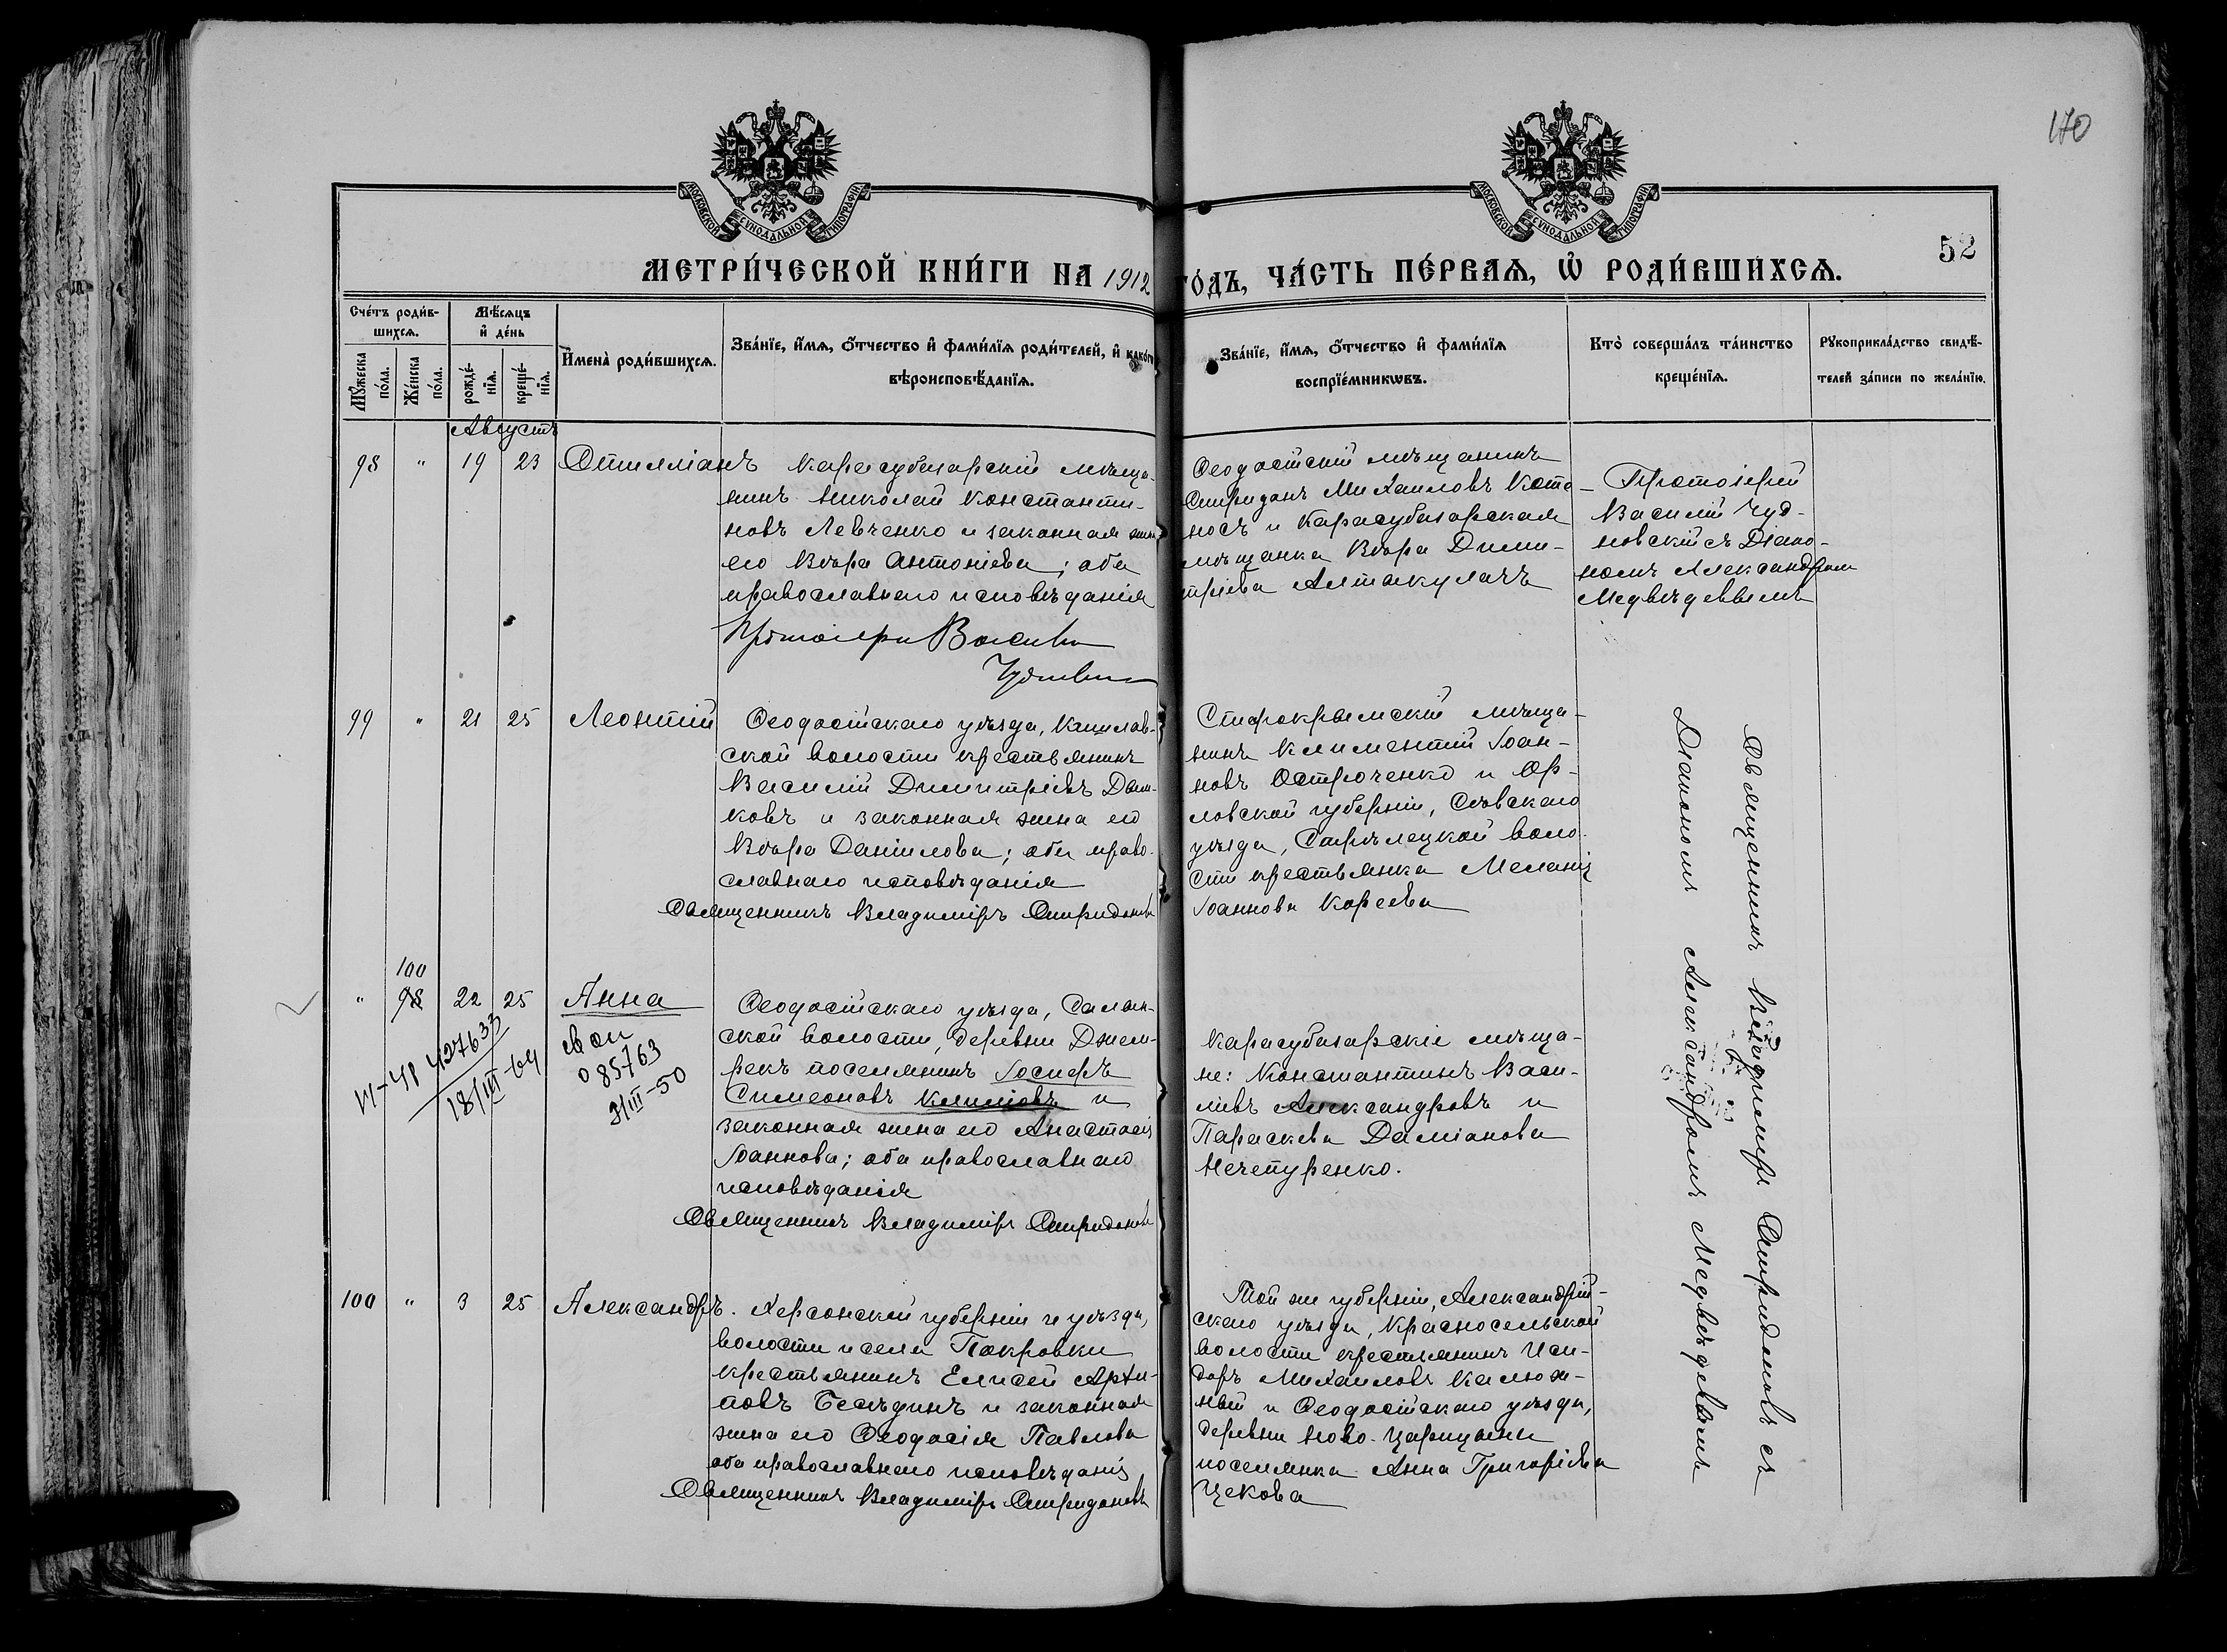 170
52
МОСКОВСКОЙ СѴНОДАЛЬНОЙ ТИПОГРАФІИ
МОСКОВСКОЙ СѴНОДАЛЬНОЙ ТИПОГРАФІИ
МЕТРИ́ЧЕСКОЙ КНИ́ГИ НА 1912 ГО́ДЪ, ЧА́СТЬ ПЕ́РВАѦ, Ѽ РОДИ́ВШИХСѦ.
Сче́тъ роди́в-
шихсѧ.
Мꙋ́жеска
по́ла.
Же́нска
по́ла.
Мѣ́сѧцъ
и҆ де́нь
рожде́-
нїѧ.
креще́-
нїѧ.
И҆мена̀ роди́вшихсѧ.
Зва́нїе, и҆́мѧ, ѻ҆́тчество и҆ фами́лїѧ роди́телей, и҆ како́гѡ
вѣроисповѣ́данїѧ.
Зва́нїе, и҆́мѧ, ѻ҆́тчество и҆ фами́лїѧ
воспрїе́мникѡвъ.
Кто̀ соверша́лъ та́инство
креще́нїѧ.
Рꙋкоприкла́дство свидѣ́-
телей за́писи по жела́нїю.
Августъ
98 " 19 23
Стиліанъ
Карасубазарскій мѣща-
нинъ Николай Константи-
новъ Левченко и законная жена
его Вѣра Антоніева; оба
православнаго исповѣданія
Протоіерей Василій
Чудновскій
Ѳеодосійскій мѣщанинъ
Спиридонъ Михаиловъ Кото-
носъ и Карасубазарская
мѣщанка Вѣра Дими-
тріева Алтакулачъ
Протоіерей
Василій Чуд-
новскій съ Діако-
номъ Александромъ
Медвѣдевымъ
99 " 21 25
Леонтій
Ѳеодосійскаго уѣзда,
ской волости крестьянинъ
Василій Димитріевъ
ковъ и законная жена его
Вѣра Даніилова; оба право-
славнаго исповѣданія
Священникъ Владиміръ Спиридоновъ
Старокрымскій мѣща-
нинъ Климентій Іоан-
новъ Остроченко и Ор-
ловской губерніи, Сѣвскаго
уѣзда, Стрѣлецкой воло-
сти крестьянка Меланія
Іоаннова Кореева
Священникъ Владиміръ Спиридоновъ съ
Діакономъ Александромъ Медвѣдевымъ
100
" 98 22 25
Анна
свои
085763
3/III-50
427633
18/III-64
Ѳеодосійскаго уѣзда, Салын-
ской волости, деревни Джем-
рекъ поселянинъ Іосифъ
Симеоновъ Климовъ и
законная жена его Анастасія
Іоаннова; оба православнаго
исповѣданія
Священникъ Владиміръ Спиридоновъ
Карасубазарскіе мѣща-
не: Константинъ Васи-
ліевъ Александровъ и
Параскева Даміанова
Нечепуренко.
100 " 3 25
Александръ.
Херсонской губерніи и уѣзда,
волости и села Покровки
крестьянинъ Елисей Архи-
повъ Бесѣдинъ и законная
жена его Ѳеодосія Павлова
оба православнаго исповѣданія
Священникъ Владиміръ Спиридоновъ
Той же губерніи, Александрій-
скаго уѣзда, Красносельской
волости крестьянинъ Иси-
доръ Михаиловъ Калюж-
ный и Ѳеодосійскаго уѣзда,
деревни Ново-Царицыни
поселянка Анна Григоріева
Цекова